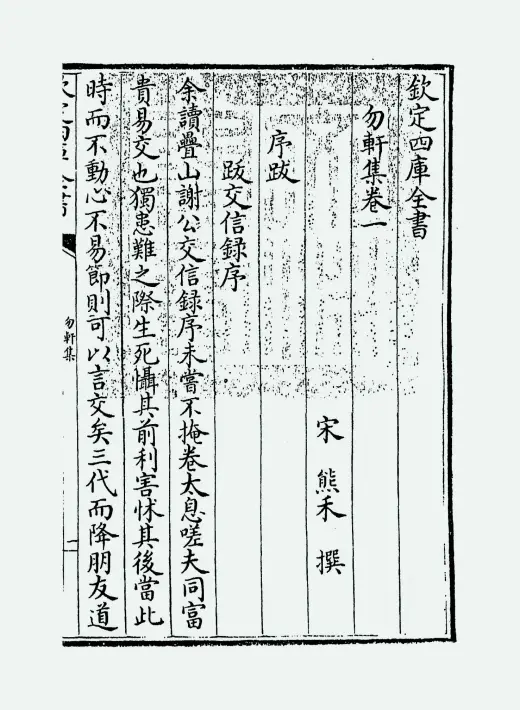 欽定四庫全書
勿軒集卷一
宋 熊禾 撰
序跋
跋交信録序
余讀疊山謝公交信録序未嘗不掩卷太息嗟夫同富
貴易交也獨患難之際生死懾其前利害怵其後當此
時而不動心不易節則可以言交矣三代而降朋友道
欽定四庫全書
勿軒集
一